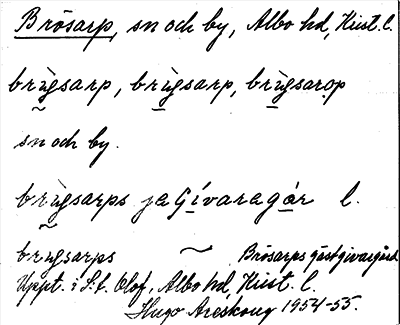 Brösarp, sn och by, Albo hd, Krist. l.
brùgsarp, brùgsarp, brùgsarop
sn och by.
brùgsarps jagívaragár l.
brugsarps ~ Brösarps gästgivargård
Uppt. i S:t Olof, Albo hd, Krist. l.
Hugo Areskoug 1954-55.